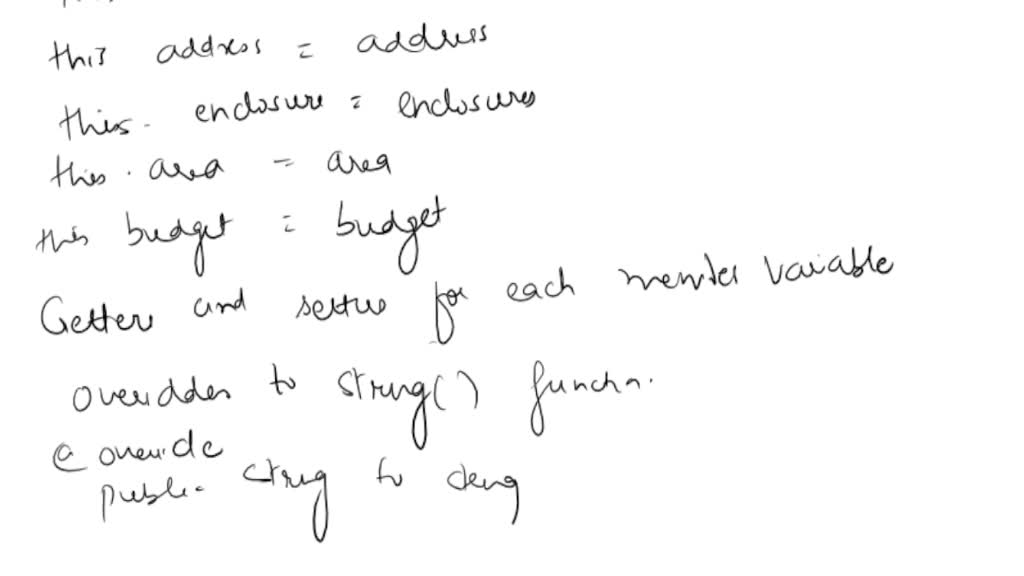 this address = address
this. enclosure = enclosures
this. area = area
this budget = budget
Getters and setters for each member variable
overidden to string() function.
@ override
public string to